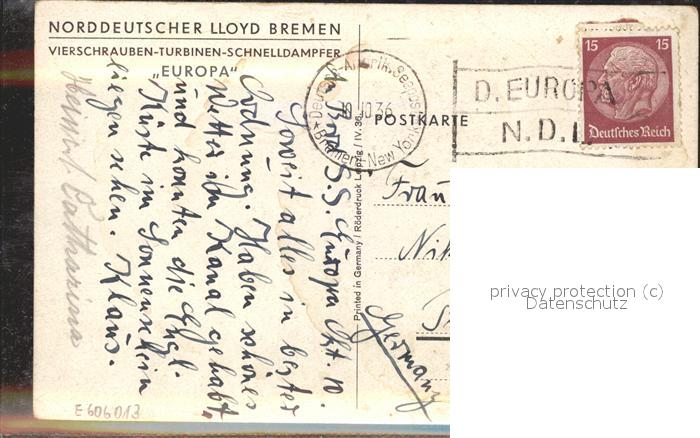 NORDDEUTSCHER LLOYD BREMEN
VIERSCHRAUBEN-TURBINEN-SCHNELLDAMPFER
„EUROPA“
An Bord S.S. Europa Okt. 10.
Soweit alles in bester
Ordnung. Haben schönes
Wetter im Kanal gehabt,
und konnten die Engl.
Küste im Sonnenschein
liegen sehen. Klaus.
Catharina
E606013
Printed in Germany / Röderdruck Leipzig / IV. 36.
Deutsch-Amerik. Seepost
10.36
Bremen-New York
POSTKARTE
D. EUROPA
N.D.L.
15 15
Deutsches Reich
Frau
Germany
privacy protection (c)
Datenschutz